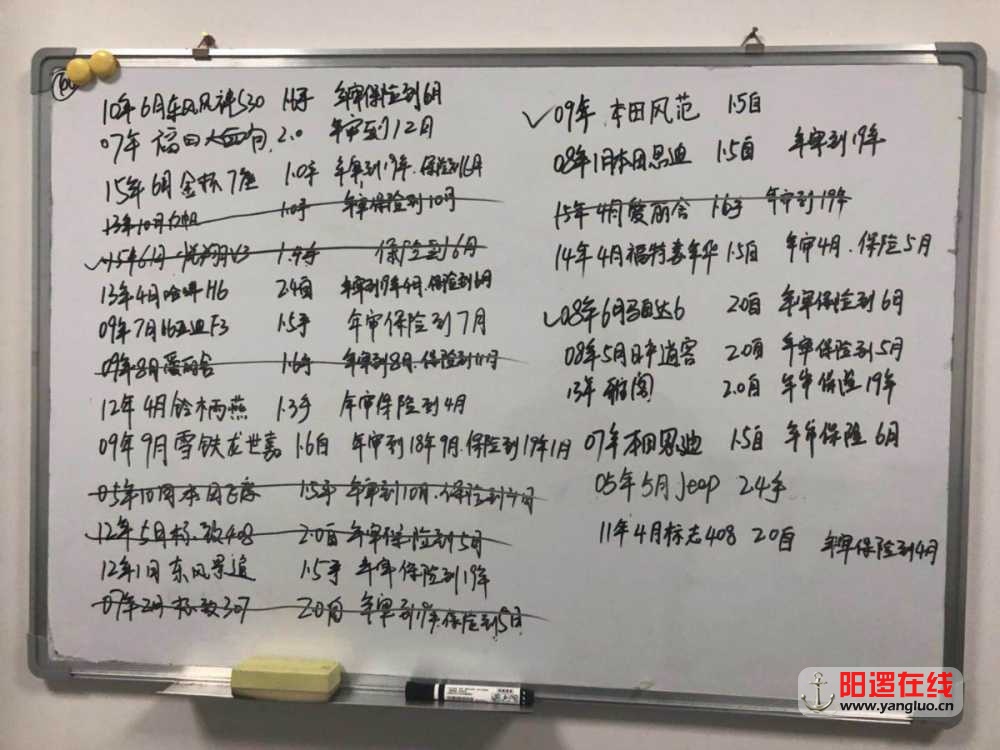 10年6月东风风神S30 1.6手 年审保险到6月
07年 福田大 2.0 年审到12月
15年6月金杯7座 1.0手 年审到19年.保险到6月
13年10月 1.0手 年审保险到10月
15年6月 悦翔V3 保险到6月
13年4月哈弗H6 2.4自 年审到19年4月.保险到6月
09年7月比亚迪F3 1.5手 年审保险到7月
09年8月爱丽舍 1.6手 年审到8月.保险到11月
12年4月铃木雨燕 1.3手 年审保险到4月
09年9月雪铁龙世嘉 1.6自 年审到18年9月.保险到19年1月
05年10月本田飞度 1.5手 年审到10月.保险到
12年5月标致408 2.0自 年审保险到5月
12年1月东风景逸 1.5手 年审保险到19年
07年2月标致307 2.0自 年审到19年.保险到5月
✓09年.本田风范 1.5自
08年1月本田思迪 1.5自 年审到19年
15年4月爱丽舍 1.6手 年审到19年
14年4月福特嘉年华 1.5自 年审4月.保险5月
✓08年6月马自达6 2.0自 年审保险到6月
08年5月日产逍客 2.0自 年审保险到5月
13年雅阁 2.0自 年审保险19年
07年本田思迪 1.5自 年审保险6月
05年5月Jeep 2.4手
11年4月标志408 2.0自 年审保险到4月
阳逻在线
www.yangluo.cn